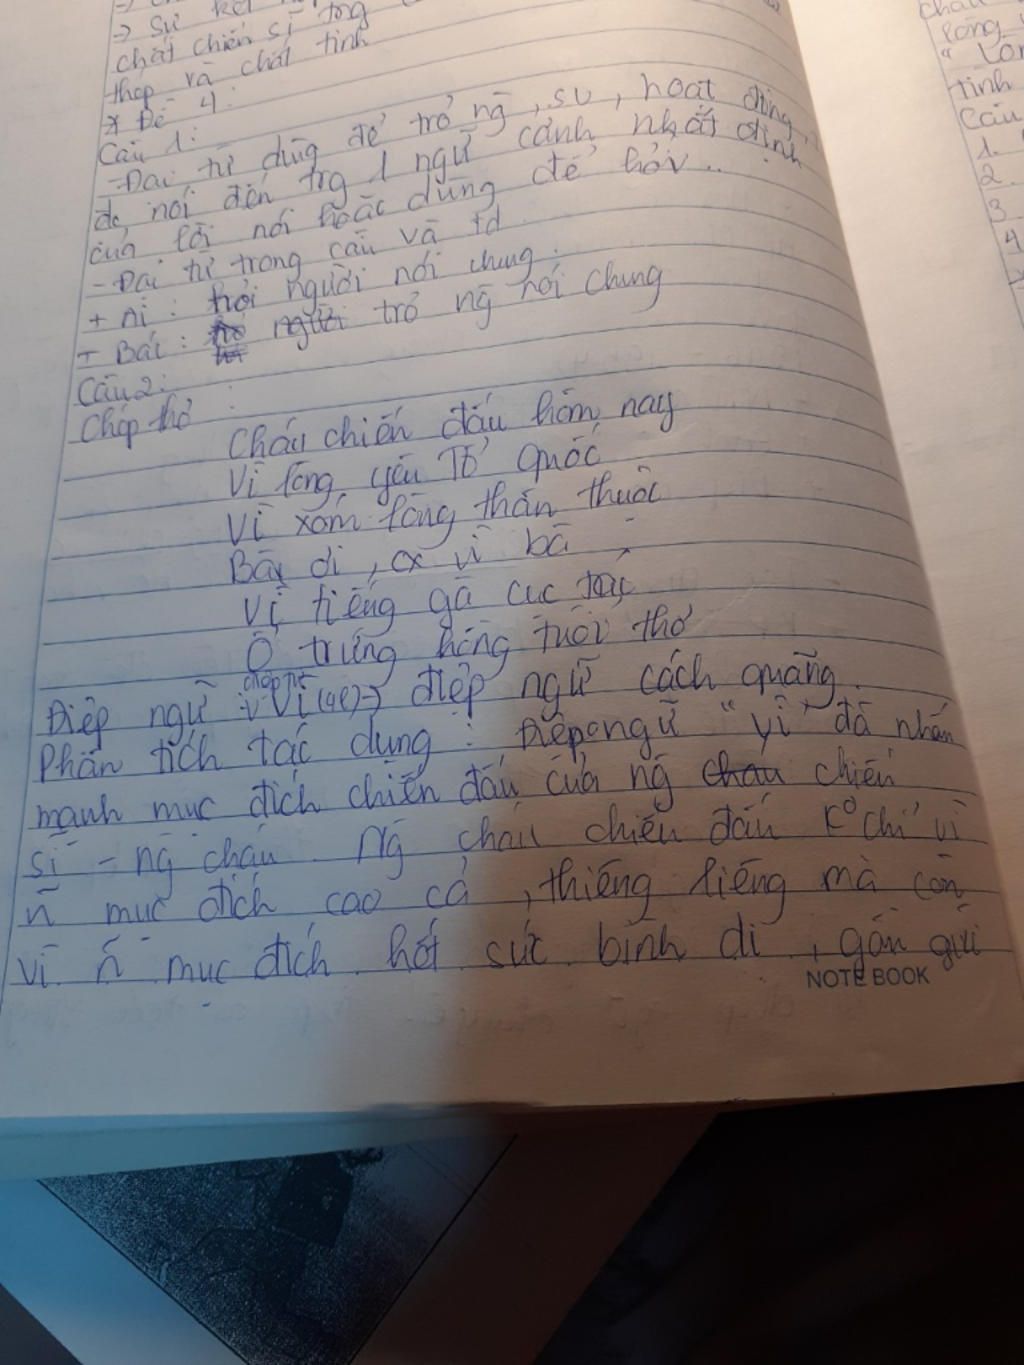 => Sự kết
chất chiến sĩ trg
thép và chất tình
* Đề 4:
Câu 1:
- Đại từ dùg để trỏ ng, sv, hoạt động,
đc nói đến trg 1 ngữ cảnh nhất định
của lời nói hoặc dùng để hỏi..
- Đại từ trong câu và td
+ ai: hỏi người nói chung.
+ Bác: người trỏ ng nói chung
Câu 2:
Chép thơ
Cháu chiến đấu hôm nay
Vì lòng yêu Tổ quốc
Vì xóm làng thân thuộc
Bà ơi, cx vì bà
Vì tiếng gà cục tác
Ổ trứng hồng tuổi thơ
Điệp ngữ: "Vì" (4l) => điệp ngữ cách quãng.
Phân tích tác dụng: Điệp ngữ "vì" đã nhấn
mạnh mục đích chiến đấu của ng cháu chiến
sĩ - ng cháu. Ng cháu chiến đấu ko chỉ vì
n~ mục đích cao cả, thiêng liêng mà còn
vì n~ mục đích hết sức bình dị, gần gũi
NOTE BOOK
cháu
lòng
"
tình
Câu
1.
2.
3
4